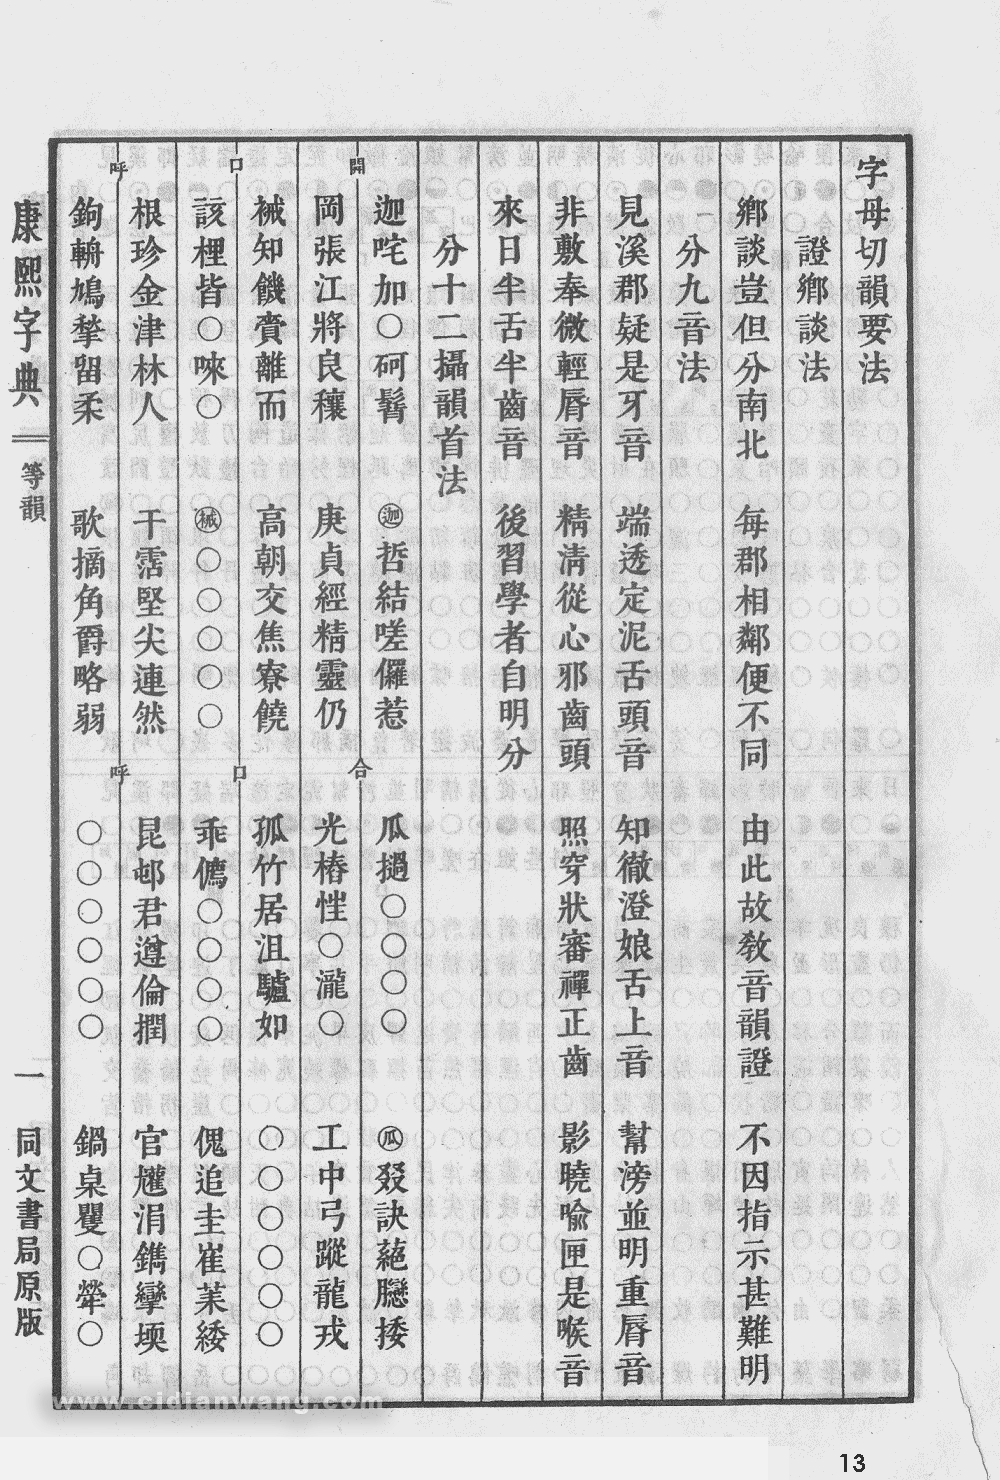 字母切韻要法
證鄉談法
鄉談豈但分南北 每郡相鄰便不同 由此故敎音韻證 不因指示甚難明
分九音法
見溪郡疑是牙音 端透定泥舌頭音 知徹澄娘舌上音 幫滂並明重脣音
非敷奉微輕脣音 精淸從心邪齒頭 照穿狀審禪正齒 影曉喩匣是喉音
來日半舌半齒音 後習學者自明分
分十二攝韻首法
開
合
迦咤加〇砢髶 ㊀迦 哲結嗟儸惹 瓜撾〇〇〇〇 瓜 叕訣蕝臕捼
岡張江將良穰 庚貞經精靈仍 光樁恇〇瀧〇 工中弓蹤龍戎
口
口
祴知饑賫離而 高朝交焦寮饒 孤竹居沮驢如 〇〇〇〇〇〇
該桋皆〇唻〇 祴 〇〇〇〇〇 乖㒟〇〇〇〇 傀追圭崔藟緌
呼
呼
根珍金津林人 干霑堅尖連然 昆邨君遵倫犉 官尵涓鐫攣堧
鉤輈鳩揫畱柔 歌摘角爵略弱 〇〇〇〇〇〇 鍋桌矍〇犖〇
康熙字典
等韻
一
同文書局原版
www.cidianwang.com
13